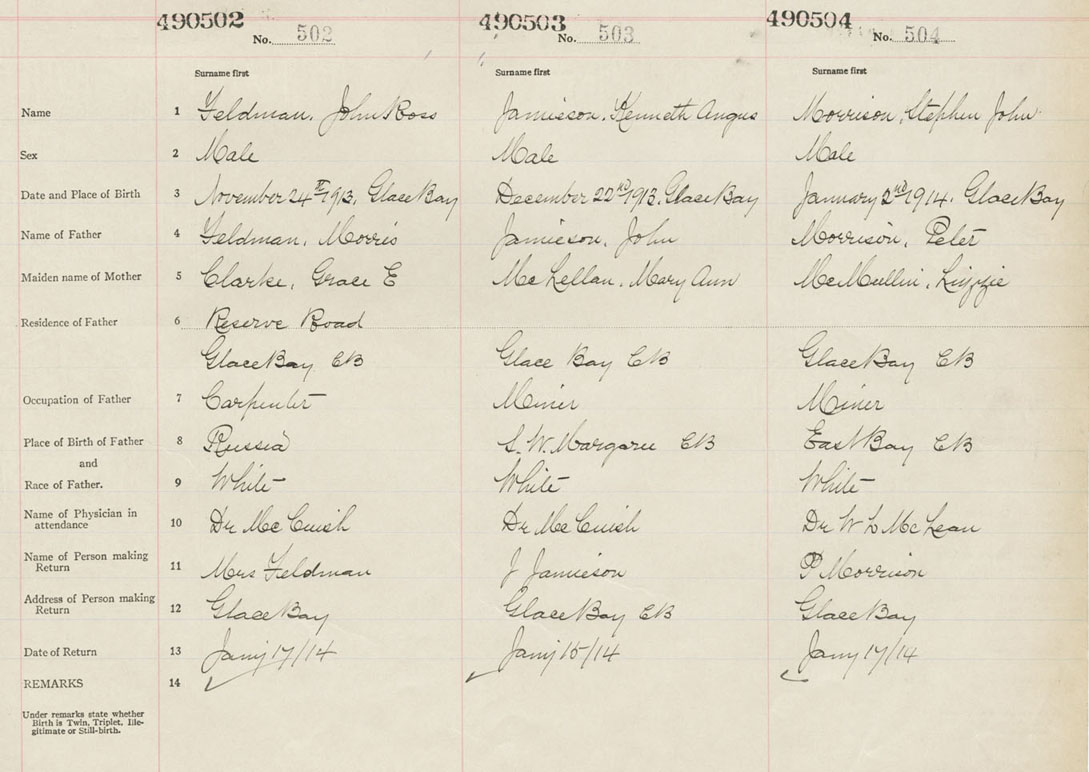 490502 490503 490504
No. 502 No. 503 No. 504
Surname first Surname first Surname first
Name 1 Feldman, John Ross Jamieson, Kenneth Angus Morrison, Stephen John
Sex 2 Male Male Male
Date and Place of Birth 3 November 24th 1913, Glace Bay December 22nd 1913, Glace Bay January 2nd 1914, Glace Bay
Name of Father 4 Feldman, Morris Jamieson, John Morrison, Peter
Maiden name of Mother 5 Clarke, Grace E McLellan, Mary Ann McMullin, Lizzie
Residence of Father 6 Reserve Road
Glace Bay CB Glace Bay CB Glace Bay CB
Occupation of Father 7 Carpenter Miner Miner
Place of Birth of Father 8 Russia S. W. Margaree CB East Bay CB
and
Race of Father. 9 White White White
Name of Physician in
attendance 10 Dr McCuish Dr McCuish Dr W L McLean
Name of Person making
Return 11 Mrs Feldman J Jamieson P Morrison
Address of Person making
Return 12 Glace Bay Glace Bay CB Glace Bay
Date of Return 13 Jany 17/14 Jany 15/14 Jany 17/14
REMARKS 14
Under remarks state whether
Birth is Twin, Triplet, Ille-
gitimate or Still-birth.